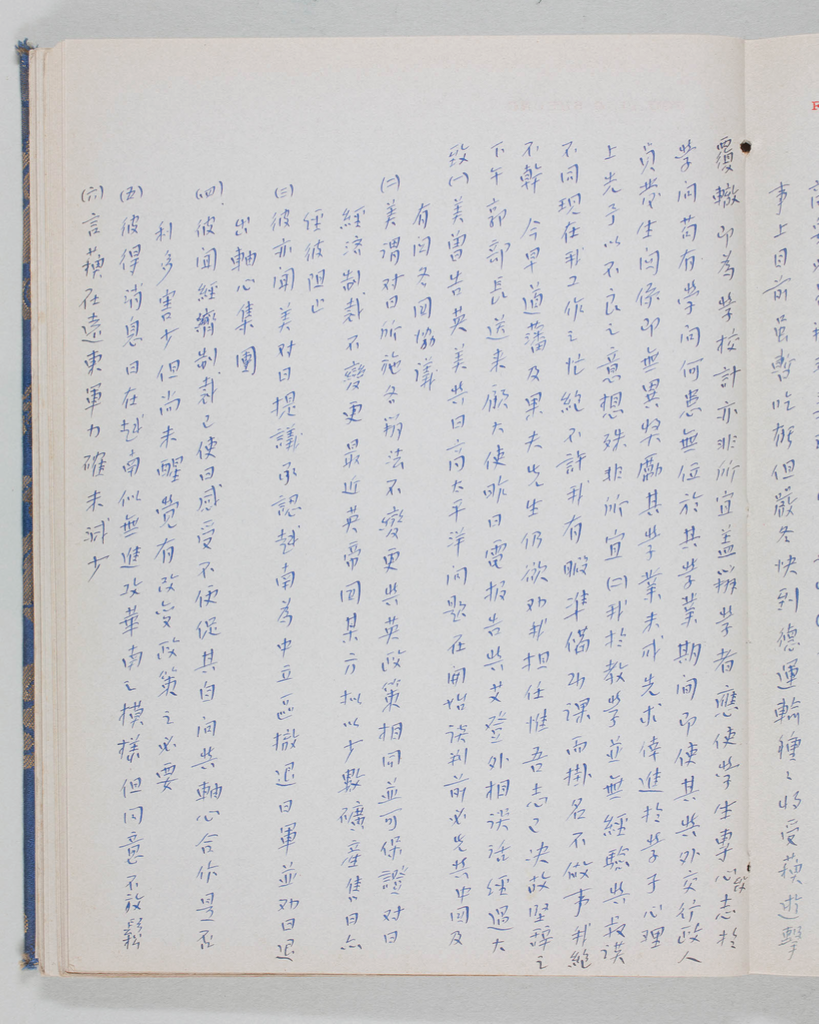 事上目前虽暫吃虧但嚴冬快到德運輸種々將受蘓遊擊
覆轍即為學校計亦非所宜盖辦學者應使學生專心致志於
學問苟有學問何患無位於其學業期間即使其與外交行政人
員發生関係即無異奬勵其學業未成先求倖進於學子心理
上先予以不良之意想殊非所宜(二)我於教學並無經驗與最誤
不同現在我工作之忙絕不許我有暇準備功課而掛名不做事我絕
不幹 今早適藩及果夫先生仍欲劝我担任惟吾志已决故坚辞之
下午郭部長送来顧大使昨日電报告與艾登外相談话經過大
致(一)美曾告英美與日商太平洋问题在開始谈判前必先與中囯及
有関各囯協議
(二)美谓对日所施各辦法不變更與英政策相同並可保證对日
經济制裁不變更最近英帝囯某方拟以少數礦產售日亦
经彼阻止
(三)彼亦闻美对日提議承認越南為中立區撤退日軍並劝日退
出軸心集團
(四)彼闻經濟制裁已使日感受不便促其自问與軸心合作是否
利多害少但尚未醒觉有改变政策之必要
(五)彼得消息日在越南似無進攻華南之模樣但同意不放鬆
(六)言蘓在遠東軍力確未減少